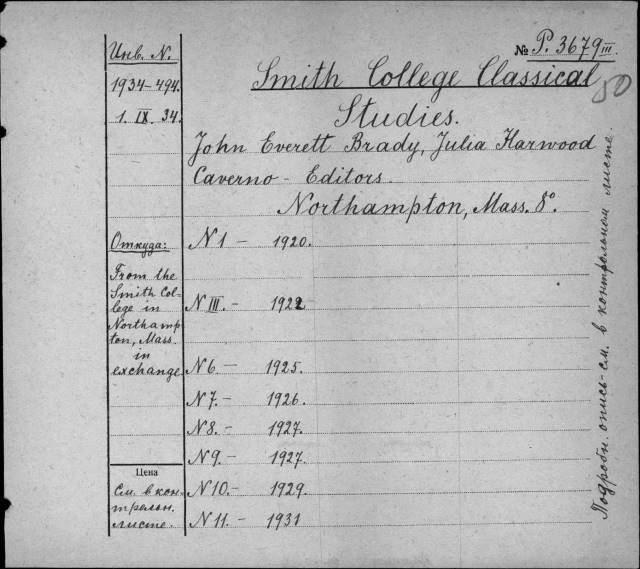 № P. 3679 III
50
Инв. N.
1934-494.
1. IX. 34.
Smith College Classical
Studies.
John Everett Brady, Julia Harwood
Caverno - Editors.
Northampton, Mass. 8°.
Откуда:
From the
Smith Col-
lege in
Northamp
ton, Mass.
in
exchange
N 1 - 1920.
N III. - 1922
N 6 - 1925.
N 7. - 1926.
N 8. - 1927.
N 9. - 1927.
N 10. - 1929.
N 11. - 1931
Цена
См. в кон-
трольн.
листе.
Подробн. опись см. в контрольном листе.